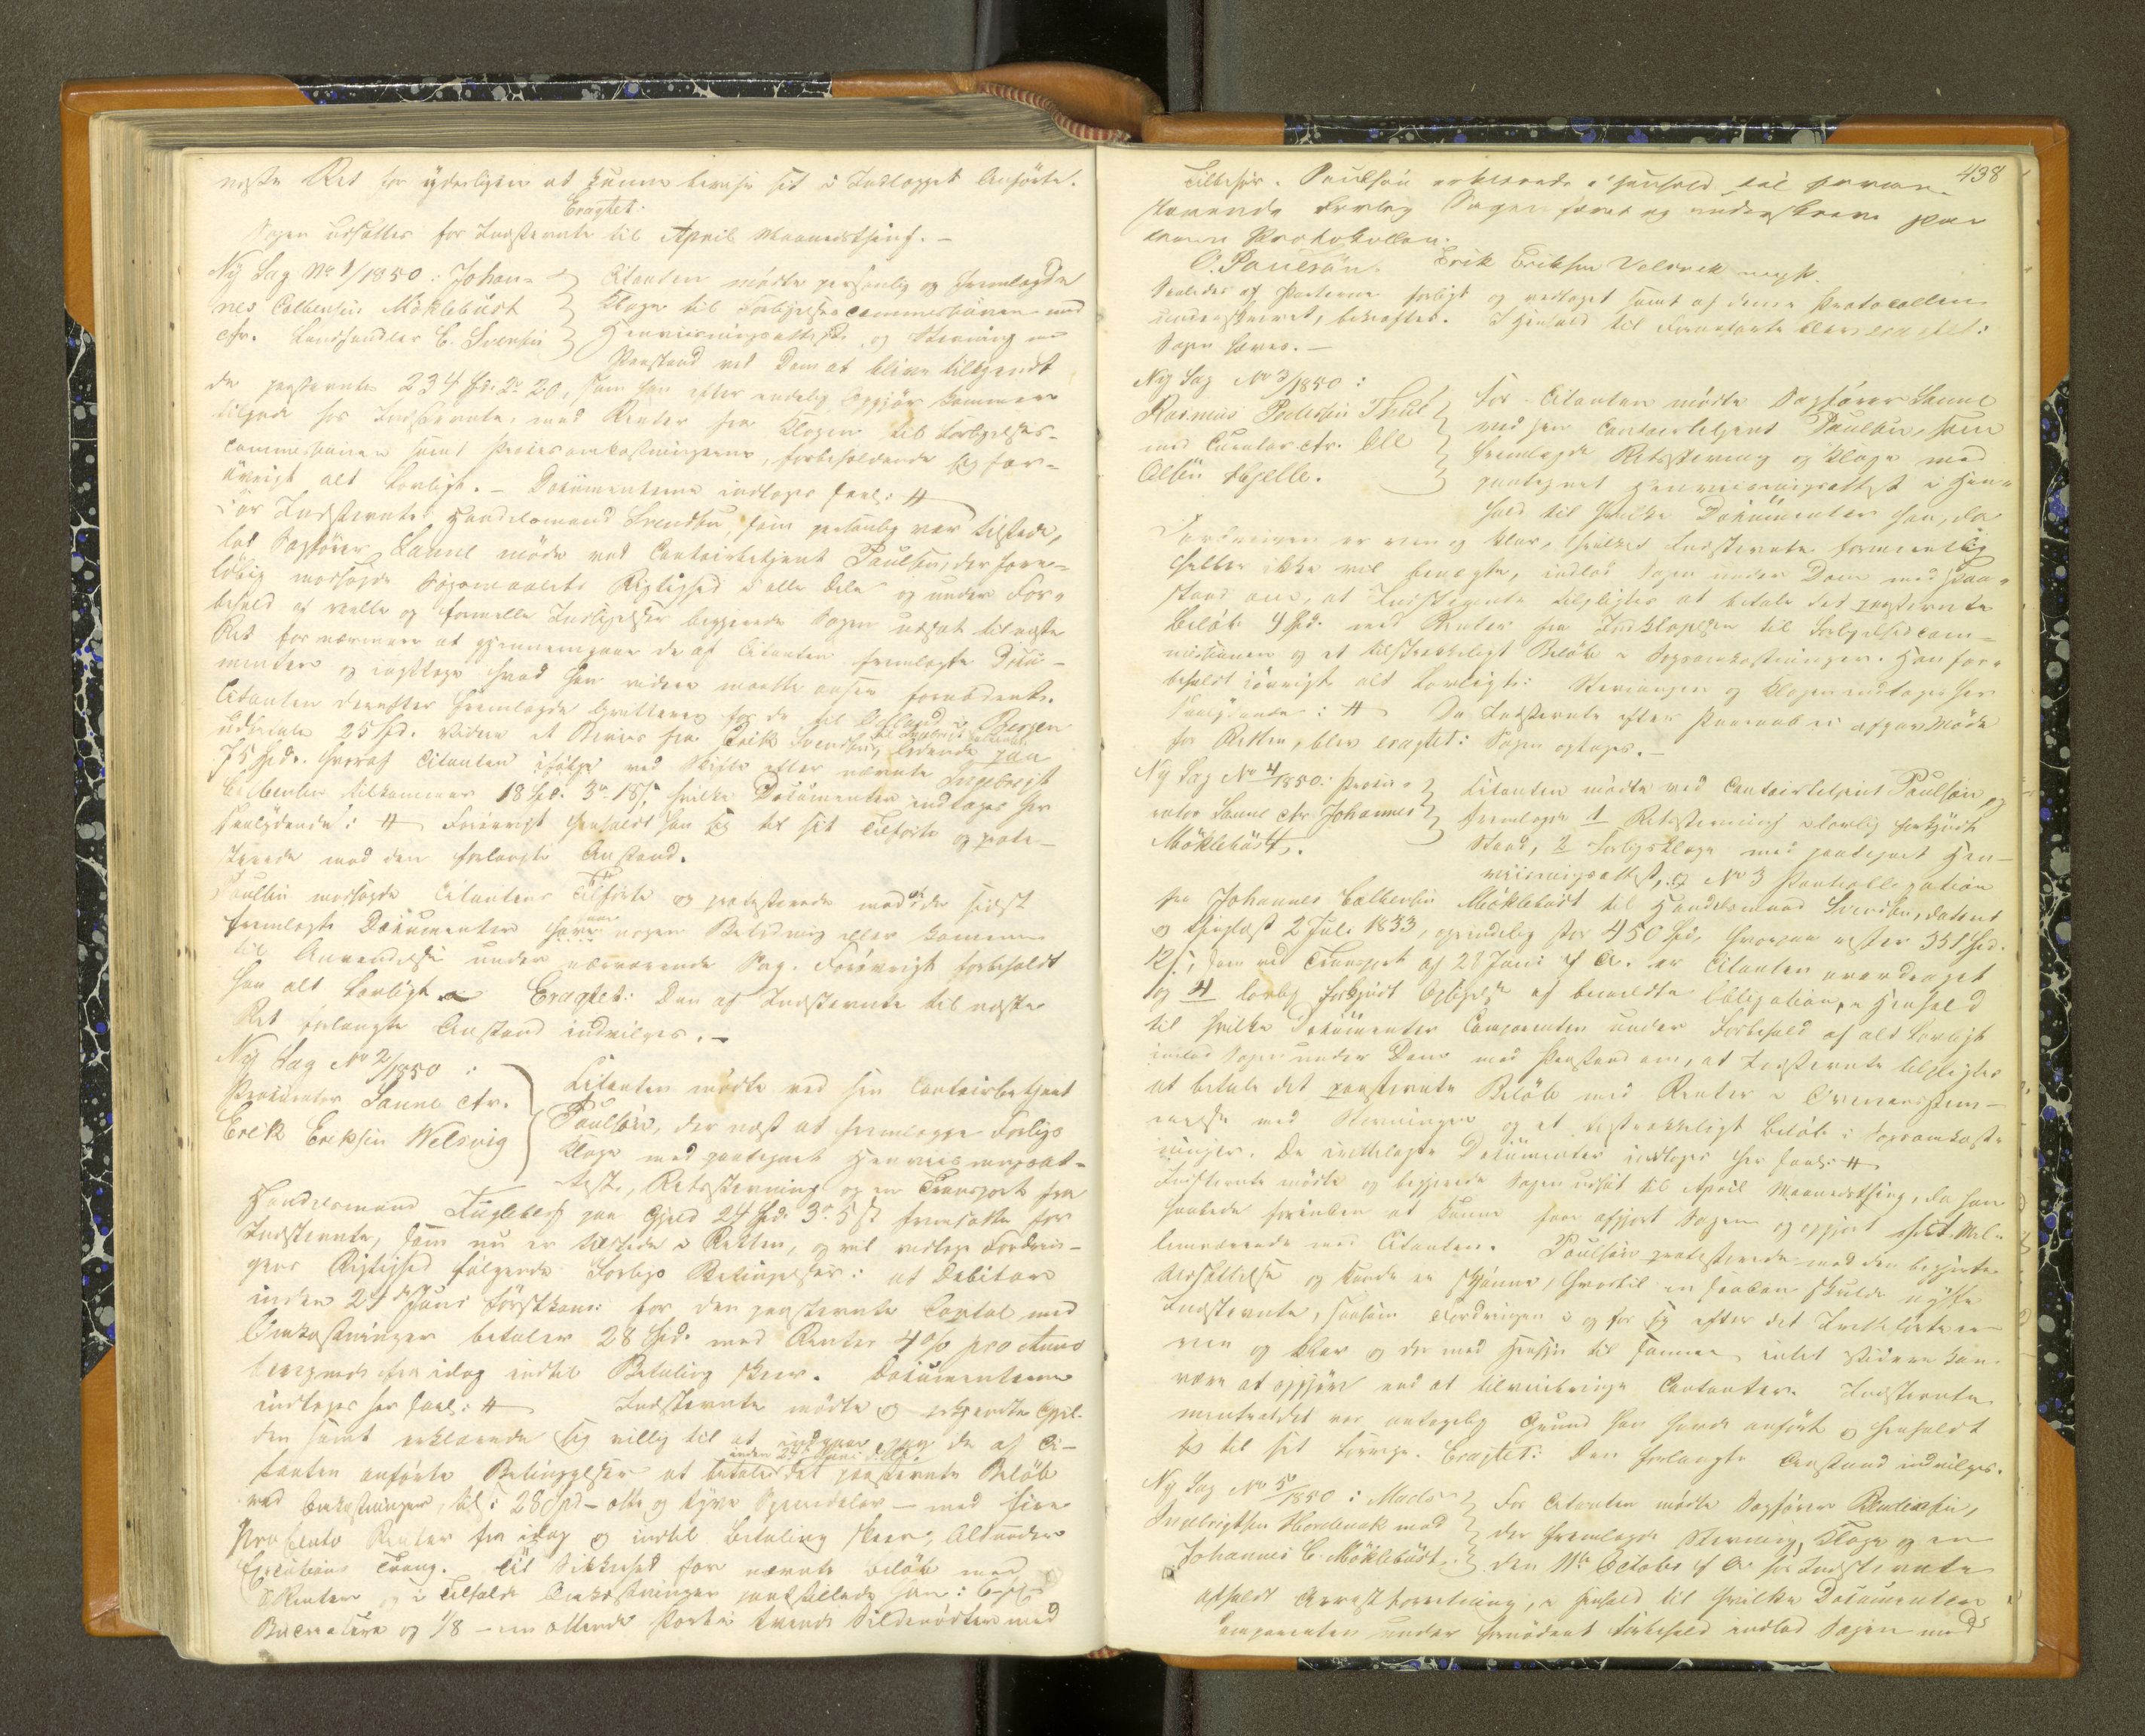 næste Ret for yderligere at kunne bevise sit i Indlægget Anførte.
Eragtet.
Sagen udsættes for Indstevnte til April Maanedsthing. –
Ny Sag No 1/1850: Johan-
nes Colbensen Möklebust
ctr. Landhandler C. Svensen
Citanten mødte personlig og fremlagde
Klage til Forligelsescommissionen med
Henviisningsattest, og Stevning med
Paastand ved Dom at blive tilkjendt
de paastevnte 234 Spd. 2 20, som han efter endelig Opgjør kommer
tilgode hos Indstevnte, med Renter fra Klagen til Forligelses-
commissionen samt Procesomkostningerne, forbeholdende sig for-
øvrigt alt Lovligt. – Documenterne indtages saal: #
For Indstevnte Handelsmand Svendsen, som personlig var tilstede,
lod Sagfører Sanne møde ved Contoirbetjent Paulsen, der fore-
løbig modsagde Søgsmaalets Rigtighed i alle Dele og under For-
behold af reelle og formelle Indsigelser begjerede Sagen udsat til næste
Ret for nærmere at gjennemgaae de af Citanten fremlagte Docu-
menter og iagttage hvad han videre maatte ansee fornødent.
Citanten derefter fremlagde Qvittering for de til i Bergen
udbetalte 25 Spd. videre et Beviis fra Erik Svendsen, til Ingebrigt Colbensen lydende paa
75 Spd. hvoraf Citanten ifølge ved Skifte efter nævnte Ingebrigt
Colbensen tilkommer 18 Spd. 3 18 s, hvilke Documenter indtages her
saalydende: # Forøvrigt henholdt han sig til sit Tilførte og prote-
sterede mod den forlangte Anstand.
Paulsen modsagde Citantens Tilførte og protesterede mod at de sidst
fremlagte Documenter have nogen Betydning eller komme
til Anvendelse under nærværende Sag. Forøvrigt forbeholdt
han alt Lovligt. Eragtet: Den af Indstevnte til næste
Ret forlangte Anstand indvilges. –
Ny Sag No 2/1850:
Procurator Sanne ctr.
Erek Eriksen Welsvig
Citanten mødte ved sin Contoirbetjent
Paulsen, der næst at fremlægge Forligs
Klage med paategnet Henviisningsat-
test, Retsstevning og en Transport fra
Handelsmand Fuglebers paa Gjeld 24 Spd. 3 5 s. fremsatte for
Indstevnte, som nu er tilstede i Retten, og vil vedtage Fordrin-
gens Rigtighed følgende Forligs Betingelser: at Debitor
inden 24de Juni førstkom: for den paastevnte Capital med
Omkostninger betaler 28 Spd. med Renter 4% pro Anno
beregnet fra idag indtil Betaling skeer. Documenterne
indtages her saal: # Indstevnte mødte og erkjendte Gjel-
den samt erklærede sig villig til at indgaae paa de af Ci-
tanten anførte Betingelser at betale inden 24de Juni d. A. det paastevnte Beløb
med Omkostninger, til: 28 Spd – otte og tyve Speciedaler – med fire
Procento Renter fra idag og indtil Betaling skeer, alt under
Executions Tvang. Til Sikkerhed for nævnte Beløb med
Renter og i Tilfælde Omkostninger pantsatte han:
og 1/8 – en ottende Part i trende Sildenødter med
438
Tilbehør. Paulsen erklærede i Henhold til foran-
staaende Forlig Sagen hævet og underskreve paa
denne Protokollen.
O. Paulsøn. Erik Eriksen Velsvek mpf.
Saaledes af Parterne forligt og vedtaget samt af denne Protocollen
underskrevet, bekræftes. I Henhold til Foranførte blev eragtet:
Sagen hæves. –
Ny Sag No 3/1850:
Rasmus Pedersen Thue
med Curator ctr. Ole
Olsen Hjelle.
For Citanten mødte Sagfører Sanne
ved sin Contoirbetjent Paulsen, som
fremlagde Retsstevning og Klage med
paategnet Henviisningsattest i Hen-
hold til hvilke Documenter han, da
Fordringen er reen og klar, hvilket Indstevnte formentlig
heller ikke vil benægte, indlod Sagen under Dom med Paa-
stand om, at Indstevnte tilpligtes at betale det paastevnte
Beløb 9 Spd. med Renter fra Indklagelsen til Forligelsescom-
missionen og et tilstrækkeligt Beløb i Sagsomkostninger. Han for-
beholdt iøvrigt alt Lovligt: Stevningen og Klagen indtages her
saalydende: # Da Indstevnte efter Paaraab ei afgav Møde
for Retten, blev eragtet: Sagen optages. –
Ny Sag No 4/1850. Procu-
rator Sanne ctr. Johannes
Möklebust.
Citanten mødte ved Contoirbetjent Paulsen og
fremlagde 1 Retsstevning i lovlig forkyndt
Stand, 2 Forligsklage med paategnet Hen-
viisningsattest, og No 3 Pantobligation
fra Johannes Colbensen Möklebust til Handelsmand Svensen, dateret
og thinglæst 2 Juli 1833, oprindelig stor 450 Spd, hvorpaa rester 351 Spd.
12 s, som ved Transport af 28 Juni f. A. er Citanten overdraget
og 4 lovlig forkyndt Opsigelse af bemeldte Obligation, i Henhold
til hvilke Documenter Comparenten under Forbehold af alt Lovligt
indlod Sagen under Dom med Paastand om, at Indstevnte tilpligtes
at betale det paastevnte Beløb med Renter i Overeensstem-
melse med Stevningen og et tilstrækkeligt Beløb i Sagsomkost-
ninger. De irettelagte Documenter indtages her saal: #
Indstevnte mødte og begjerede Sagen udsat til April Maanedsthing, da han
haabede forinden at kunne faae afgjort Sagen og opgjort sit Mel-
lemværende med Citanten. Paulsen protesterede mod den begjerte
Udsættelse og kunde ei skjønne, hvortil en saadan skulde nytte
Indstevnte, saasom Fordringen i og for sig efter det Irettelagte er
reen og klar og der med Hensyn til samme intet videre kan
være at opgjøre end at tilveiebringe Contanter. Indstevnte
meente at det var antagelig Grund han havde anført og henholdt
sig til sit Forrige. Eragtet: Den forlangte Anstand indvilges.
Ny Sag No 5/1850: Mads
Ingebrigtsen Hordenak mod
Johannes C. Möklebust.
For Citanten mødte Sagfører Bendixsen,
der fremlagde Stevning, Klage og en
den 11te October f. A. for Indstevnte
afholdt Arrestforretning, i Henhold til hvilke Documenter
Comparenten under fornødent Forbehold indlod Sagen med